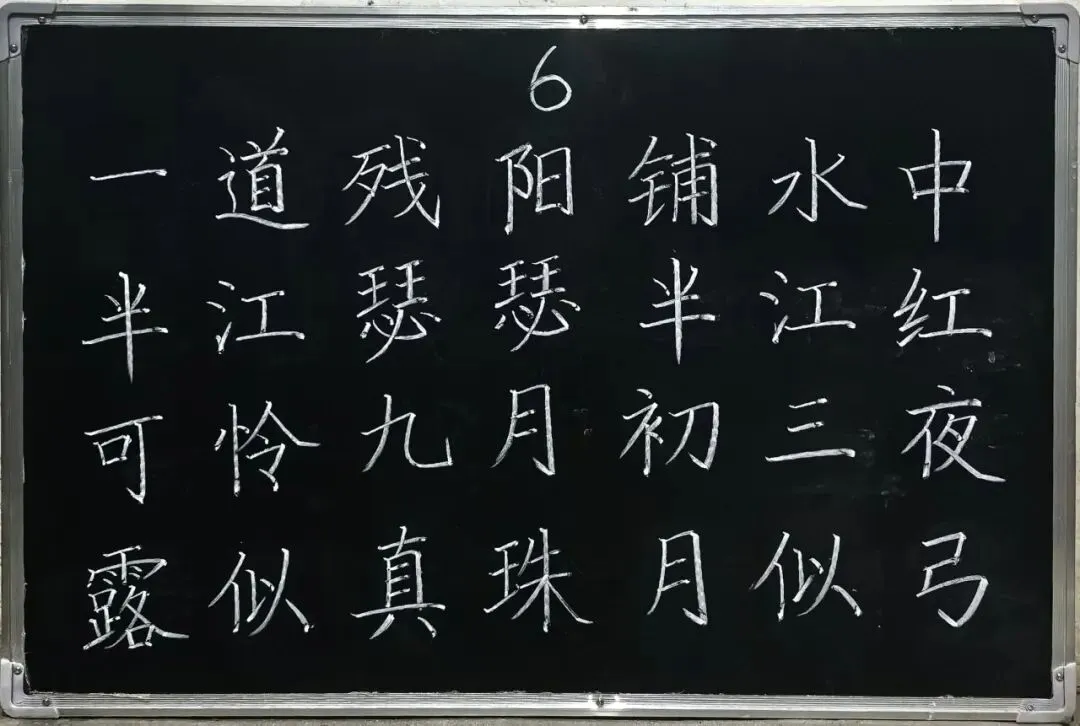 6
一道残阳铺水中
半江瑟瑟半江红
可怜九月初三夜
露似真珠月似弓